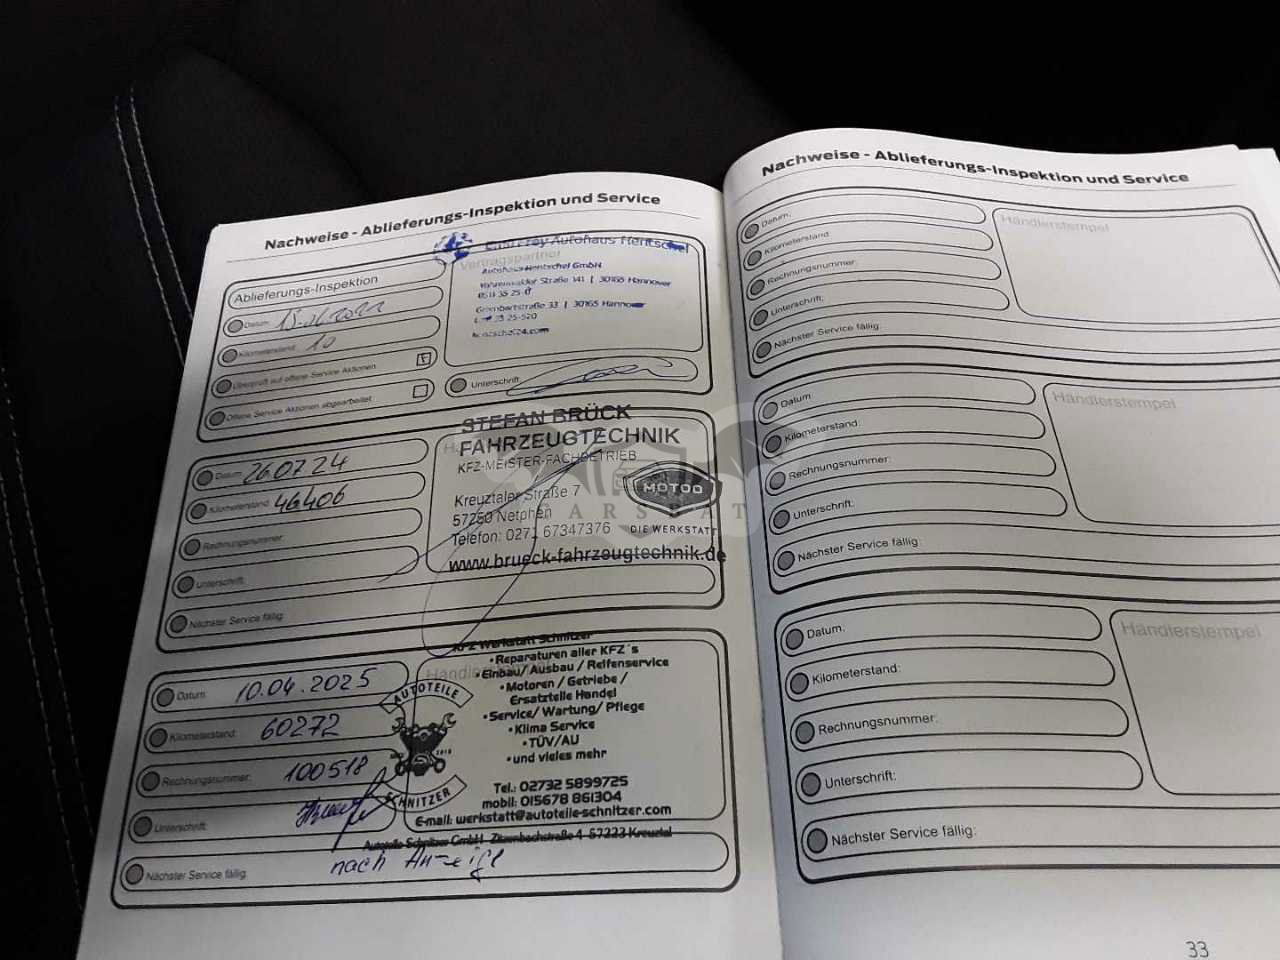 Nachweise - Ablieferungs-Inspektion und Service
Autohaus Hentschel
Vertragspartner
Autohaus Hentschel GmbH
Vahrenwalder Straße 141 | 30165 Hannover
Grambartstraße 33 | 30165 Hannover
Ablieferungs-Inspektion
Datum:
Kilometerstand: 10
Überprüft auf offene Service Aktionen
Offene Service Aktionen abgearbeitet
Unterschrift:
STEFAN BRÜCK
FAHRZEUGTECHNIK
KFZ-MEISTER-FACHBETRIEB
Kreuztaler Straße 7
57250 Netphen
Telefon: 0271 67347376
www.brueck-fahrzeugtechnik.de
MOTOO
DIE WERKSTATT
Datum: 26.07.24
Kilometerstand: 46406
Rechnungsnummer:
Unterschrift:
Nächster Service fällig:
KFZ Werkstatt Schnitzer
Händlerstempel
•Reparaturen aller KFZ´s
•Einbau/ Ausbau / Reifenservice
•Motoren / Getriebe /
Ersatzteile Handel
•Service/ Wartung/ Pflege
•Klima Service
•TÜV/AU
•und vieles mehr
Tel.: 02732 5899725
mobil: 015678 861304
E-mail: werkstatt@autoteile-schnitzer.com
Autoteile Schnitzer GmbH Zitzenbachstraße 4 57223 Kreuztal
AUTOTEILE
SCHNITZER
Datum: 10.04.2025
Kilometerstand: 60272
Rechnungsnummer: 100518
Unterschrift:
Nächster Service fällig: nach Anzeige
Nachweise - Ablieferungs-Inspektion und Service
Datum:
Kilometerstand:
Rechnungsnummer:
Unterschrift:
Nächster Service fällig:
Händlerstempel
Datum:
Kilometerstand:
Rechnungsnummer:
Unterschrift:
Nächster Service fällig:
Händlerstempel
Datum:
Kilometerstand:
Rechnungsnummer:
Unterschrift:
Nächster Service fällig:
Händlerstempel
33